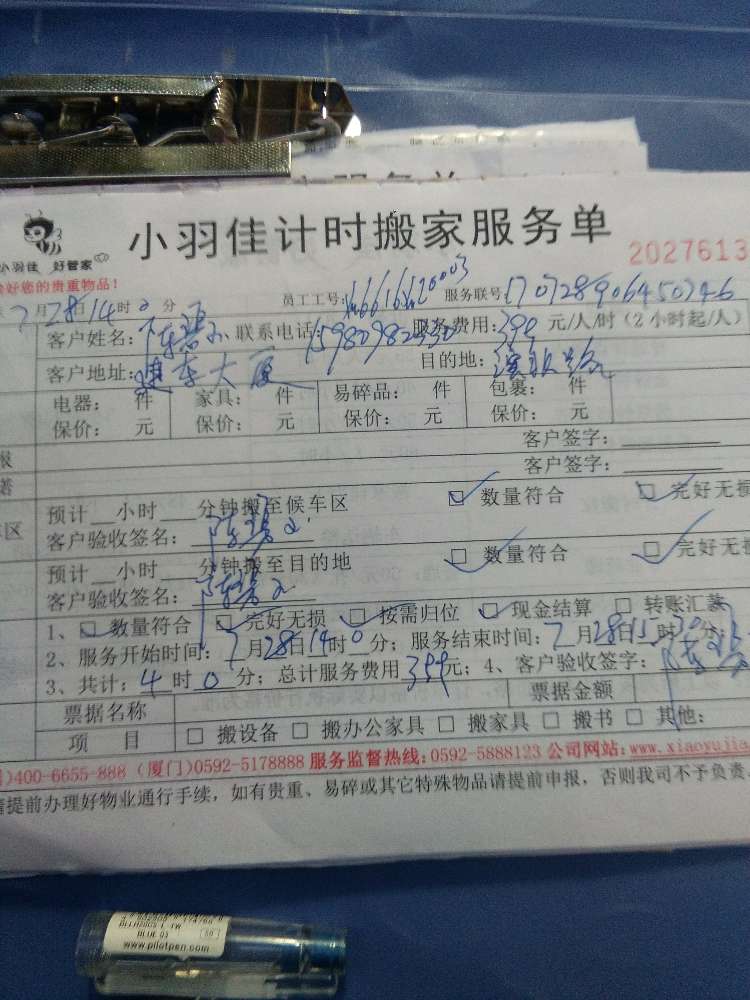 小羽佳计时搬家服务单
小羽佳 好管家
2027613
好您的贵重物品！
7月28日14时0分 员工工号： 服务联号：
客户姓名： 联系电话： 服务费用：399元/人/时（2小时起/人）
客户地址：建车大厦 目的地：
电器： 件 家具： 件 易碎品： 件 包裹： 件
保价： 元 保价： 元 保价： 元 保价： 元
客户签字：
客户签字：
预计 小时 分钟搬至候车区 数量符合 完好无损
客户验收签名：
预计 小时 分钟搬至目的地 数量符合 完好无损
客户验收签名：
1、 数量符合 完好无损 按需归位 现金结算 转账汇款
2、服务开始时间：7月28日14时0分；服务结束时间：7月28日15时30分；
3、共计：4时0分；总计服务费用399元；4、客户验收签字：
票据名称 票据金额
项 目 搬设备 搬办公家具 搬家具 搬书 其他：
)400-6655-888 (厦门)0592-5178888 服务监督热线：0592-5888123 公司网站：www.xiaoyujia
提前办理好物业通行手续，如有贵重、易碎或其它特殊物品请提前申报，否则我司不予负责。
BLUE 03
www.pilotpen.com